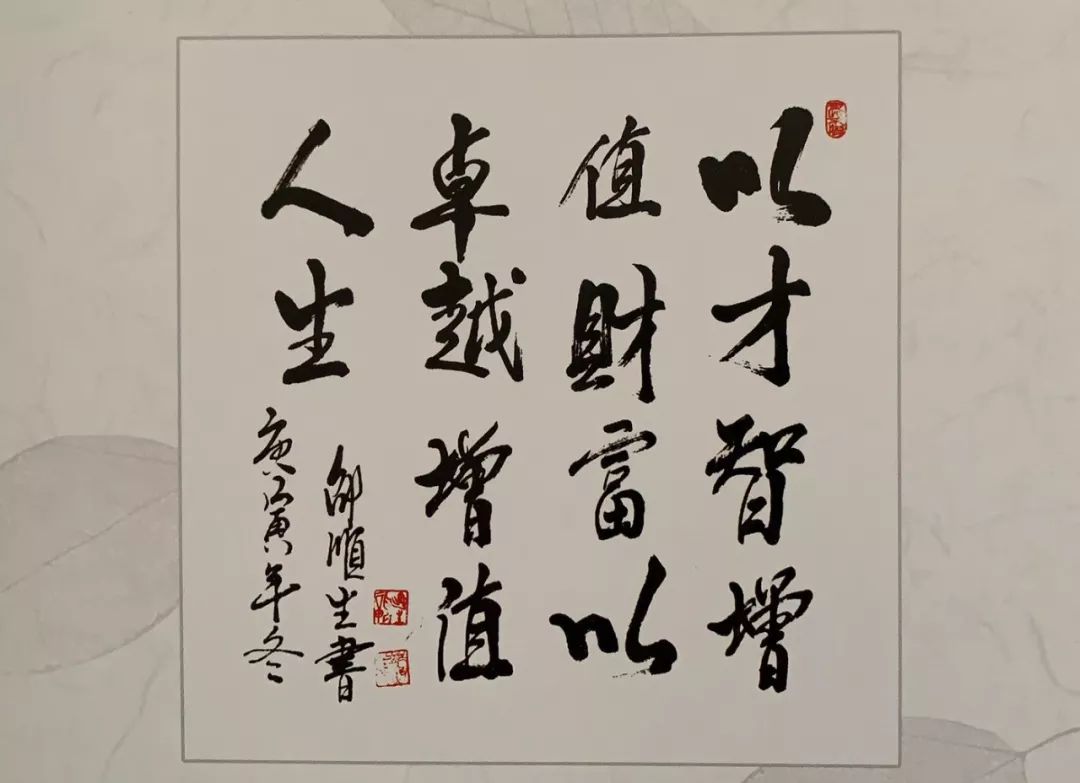 以才智增
值財富以
卓越增值
人生
邵順生書
庚寅年冬